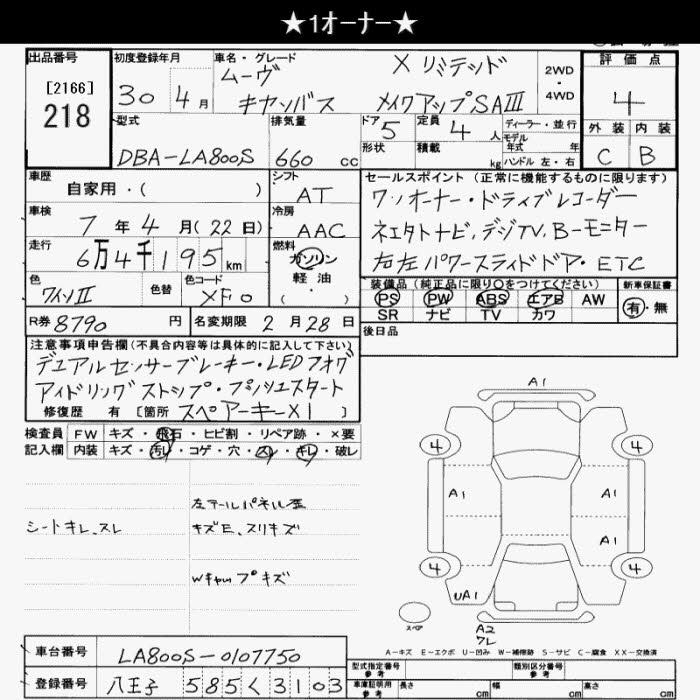 ★1オーナー★
出品番号
[2166]
218
初度登録年月
30年 4月
車名・グレード
ムーヴ X リミテッド
キャンバス メイクアップSAⅢ
2WD
・
4WD
評価点
4
外装 内装
C B
型式
DBA-LA800S
排気量
660 cc
ドア 5
形状
定員 4人
積載 kg
ディーラー・並行
モデル年式 年
ハンドル 左・右
車歴
自家用・( )
シフト
AT
車検
7年 4月(22日)
冷房
AAC
走行
6万4千195km
燃料
ガソリン
軽油
・( )
色
ワインⅡ
色替
色コード
XF0
R券 8790円
名変期限 2月28日
セールスポイント (正常に機能するものに限ります)
ワンオーナー・ドライブレコーダー
ネエタトナビ、デジTV、B-モニター
右左パワースライドドア・ETC
装備品 (純正品に限り○をつけてください)
PS PW ABS エアB AW
SR ナビ TV カワ
新車保証書
有・無
後日品
注意事項申告欄(不具合内容等は具体的に記入して下さい)
デュアルセンサーブレーキ・LEDフォグ
アイドリングストップ・プッシュスタート
修復歴 有 [箇所 スペアーキー×1 ]
検査員記入欄
FW キズ・飛石・ヒビ割・リペア跡・×要
内装 キズ・汚レ・コゲ・穴・スレ・キレ・破レ
左テールパネル歪
シートキレ、スレ
キズE、スリキズ
Wキャップキズ
A1
4 4
A1 A1
A1
4 4
UA1 A1
スペア
A2
ワレ
A-キズ E-エクボ U-凹み W-補修跡 S-サビ C-腐食 XX-交換済
車台番号
LA800S-0107750
登録番号
八王子 585く3103
型式指定番号
参考
類別区分番号
参考
車庫証明用
参考
長さ cm 幅 cm 高さ cm